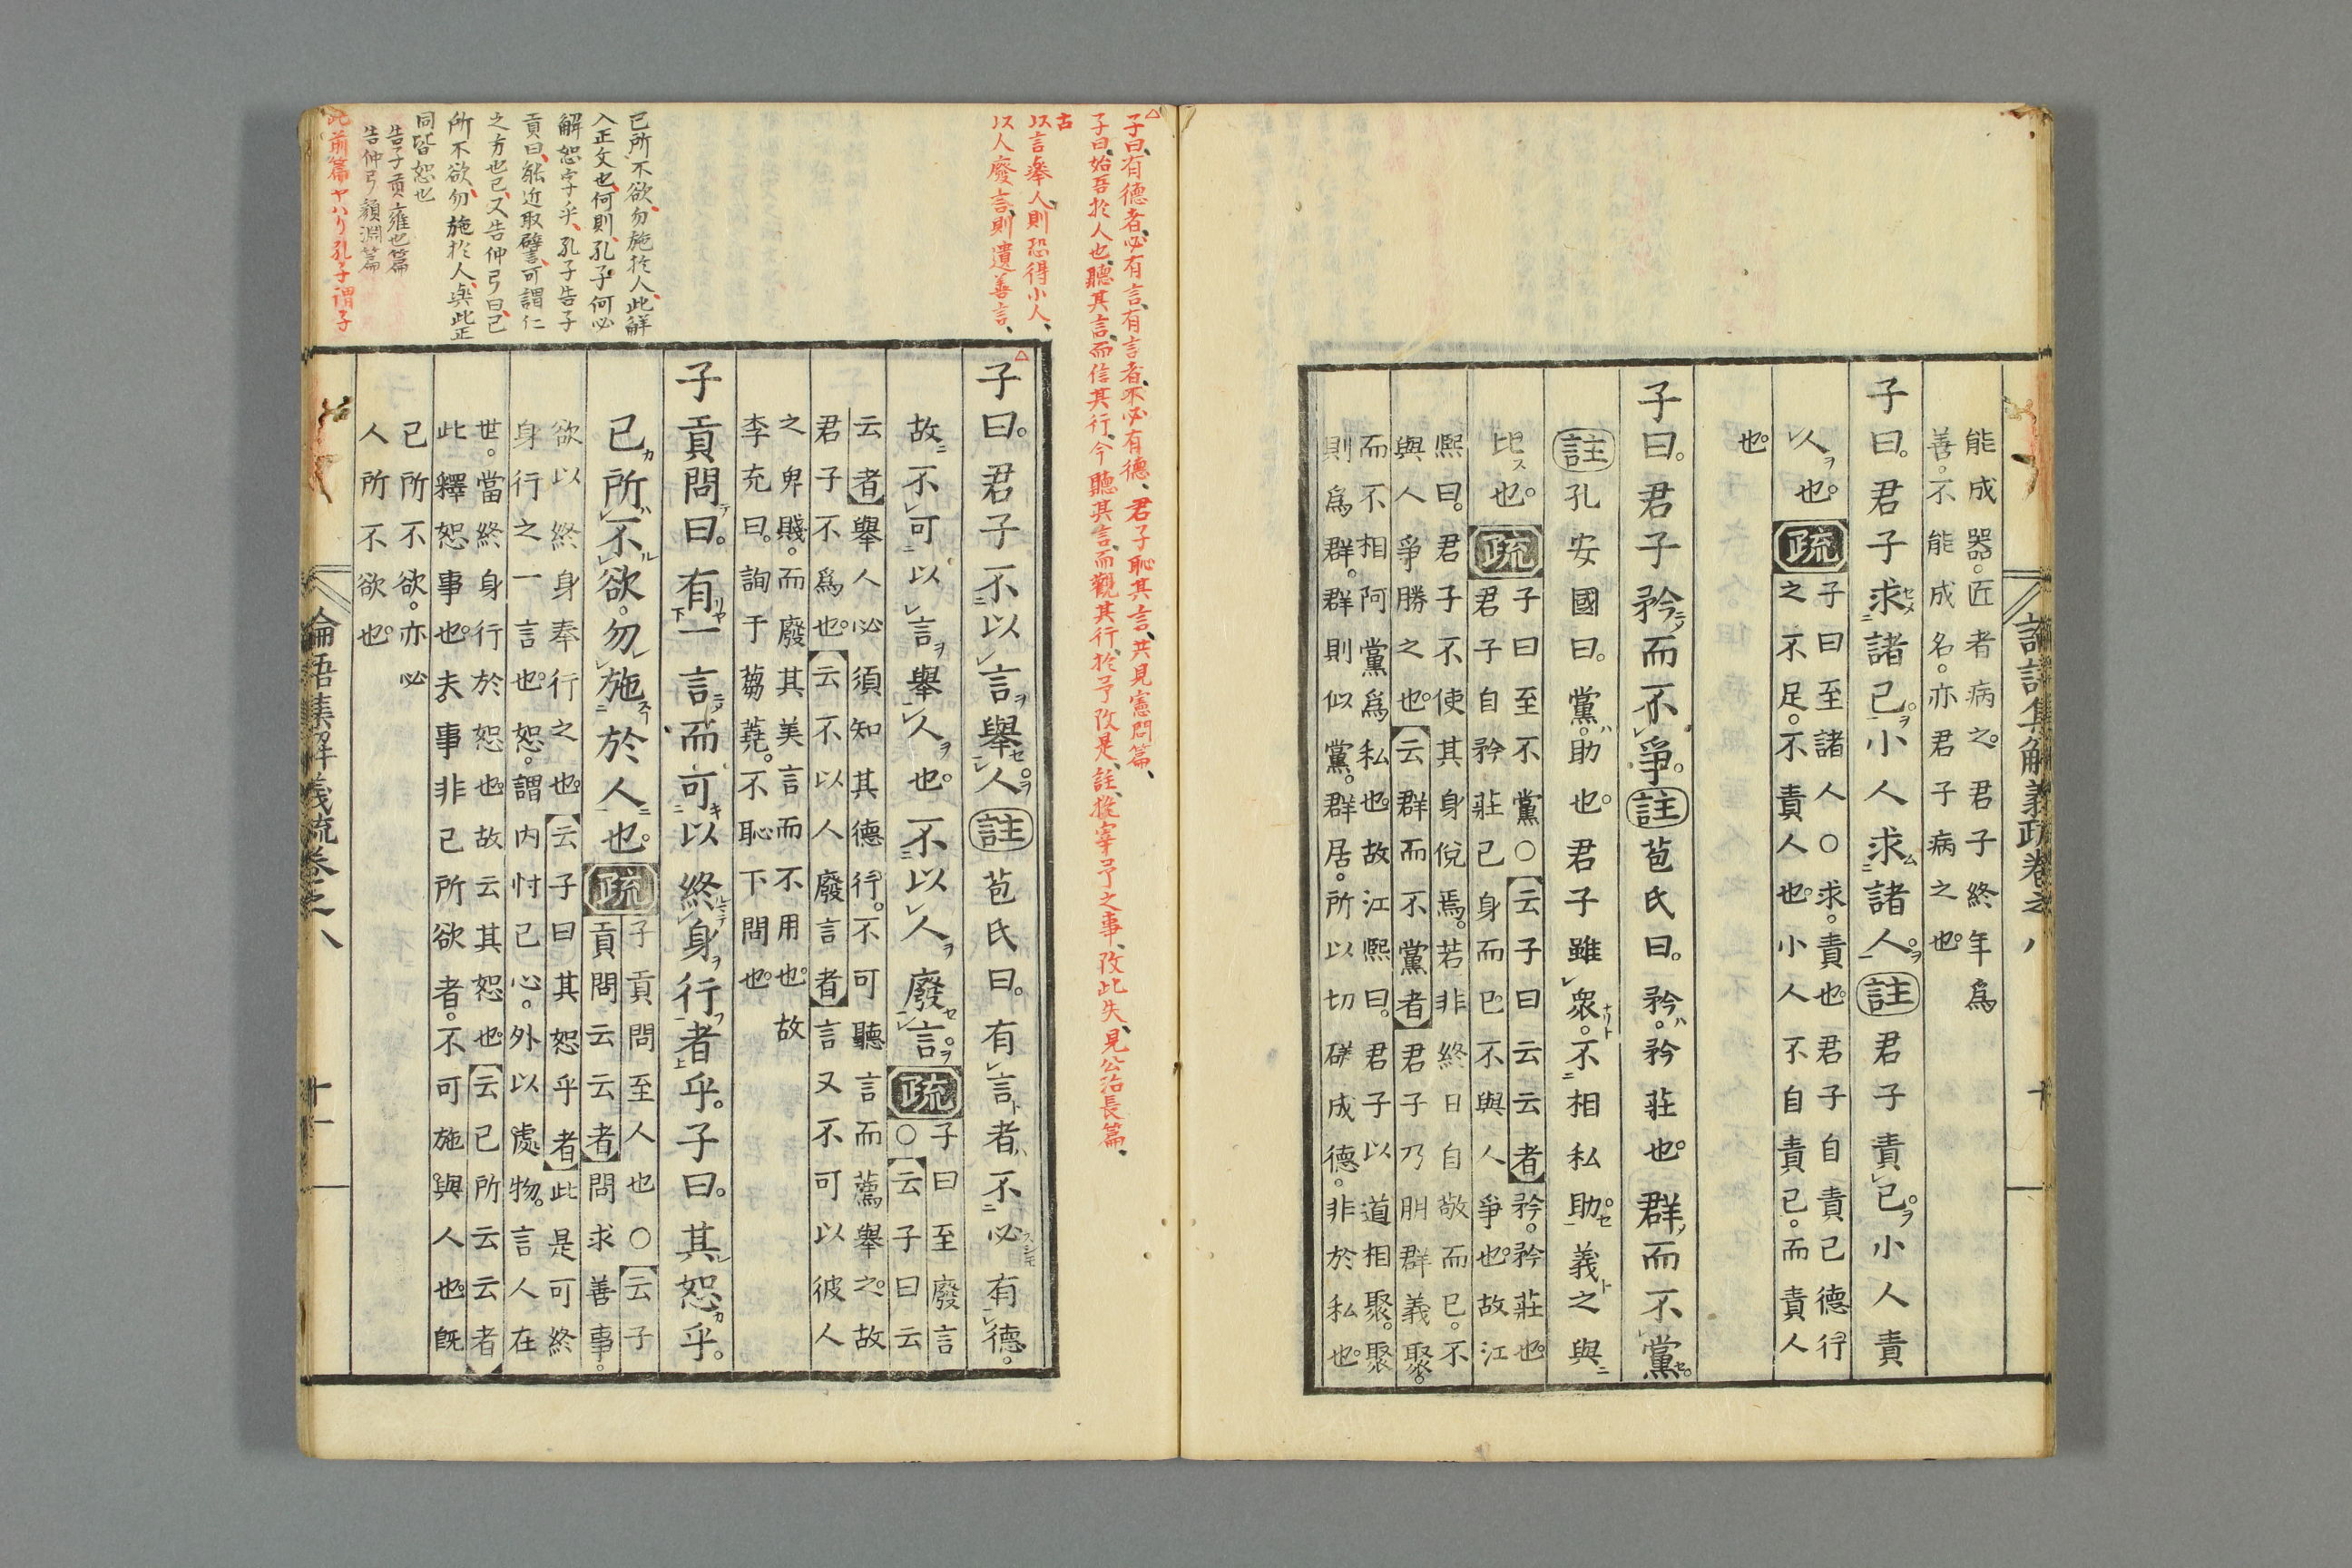 論語集解義疏卷之八 十
能成器。匠者病之。君子終年爲
善。不能成名。亦君子病之也。
子曰。君子求諸己。小人求諸人。註君子責己。小人責
人也。疏子曰至諸人○求。責也。君子自責己德行
之不足。不責人也。小人不自責己。而責人
也。
子曰。君子矜而不爭。註苞氏曰。矜。矜莊也。群而不黨。
註孔安國曰。黨。助也。君子雖衆。不相私助。義之與
比也。疏子曰至不黨○云子曰云云者矜。矜莊也。
君子自矜莊己身而已。不與人爭也。故江
熙曰。君子不使其身侻焉。若非終日自敬而已。不
與人爭勝之也。云群而不黨者君子乃朋群義聚。
而不相阿黨爲私也。故江熙曰。君子以道相聚。聚
則爲群。群則似黨。群居。所以切磋成德。非於私也。
子曰、有德者、必有言、有言者、不必有德、君子恥其言、共見憲問篇、
子曰、始吾於人也、聽其言、而信其行、今聽其言、而觀其行、於予改是、註、發宰予之事、改此失、見公冶長篇、
古
以言舉人、則恐得小人、
以人廢言、則遺善言、
己所不欲、勿施於人、此解
入正文也、何則、孔子何必
解恕字乎、孔子告子
貢曰、能近取譬、可謂仁
之方也已、又告仲弓曰、己
所不欲、勿施於人、與此正
同皆恕也
告子貢雍也篇
告仲弓顏淵篇
此前篇ヤハリ孔子謂子
子曰。君子不以言舉人。註苞氏曰。有言者。不必有德。
故不可以言舉人也。不以人廢言。疏子曰至廢言
○云子曰云
云者舉人必須知其德行。不可聽言而薦舉之。故
君子不爲也。云不以人廢言者言又不可以彼人
之卑賤。而廢其美言而不用也。故
李充曰。詢于蒭蕘。不恥下問也。
子貢問曰。有一言而可以終身行者乎。子曰。其恕乎。
己所不欲。勿施於人也。疏子貢問至人也○云子
貢問云云者問求善事。
欲以終身奉行之也。云子曰其恕乎者此是可終
身行之一言也。恕。謂内忖己心。外以處物。言人在
世。當終身行於恕也。故云其恕也。云己所云云者
此釋恕事也。夫事非己所欲者。不可施與人也。既
己所不欲。亦必
人所不欲也。
論語集解義疏卷之八 十一